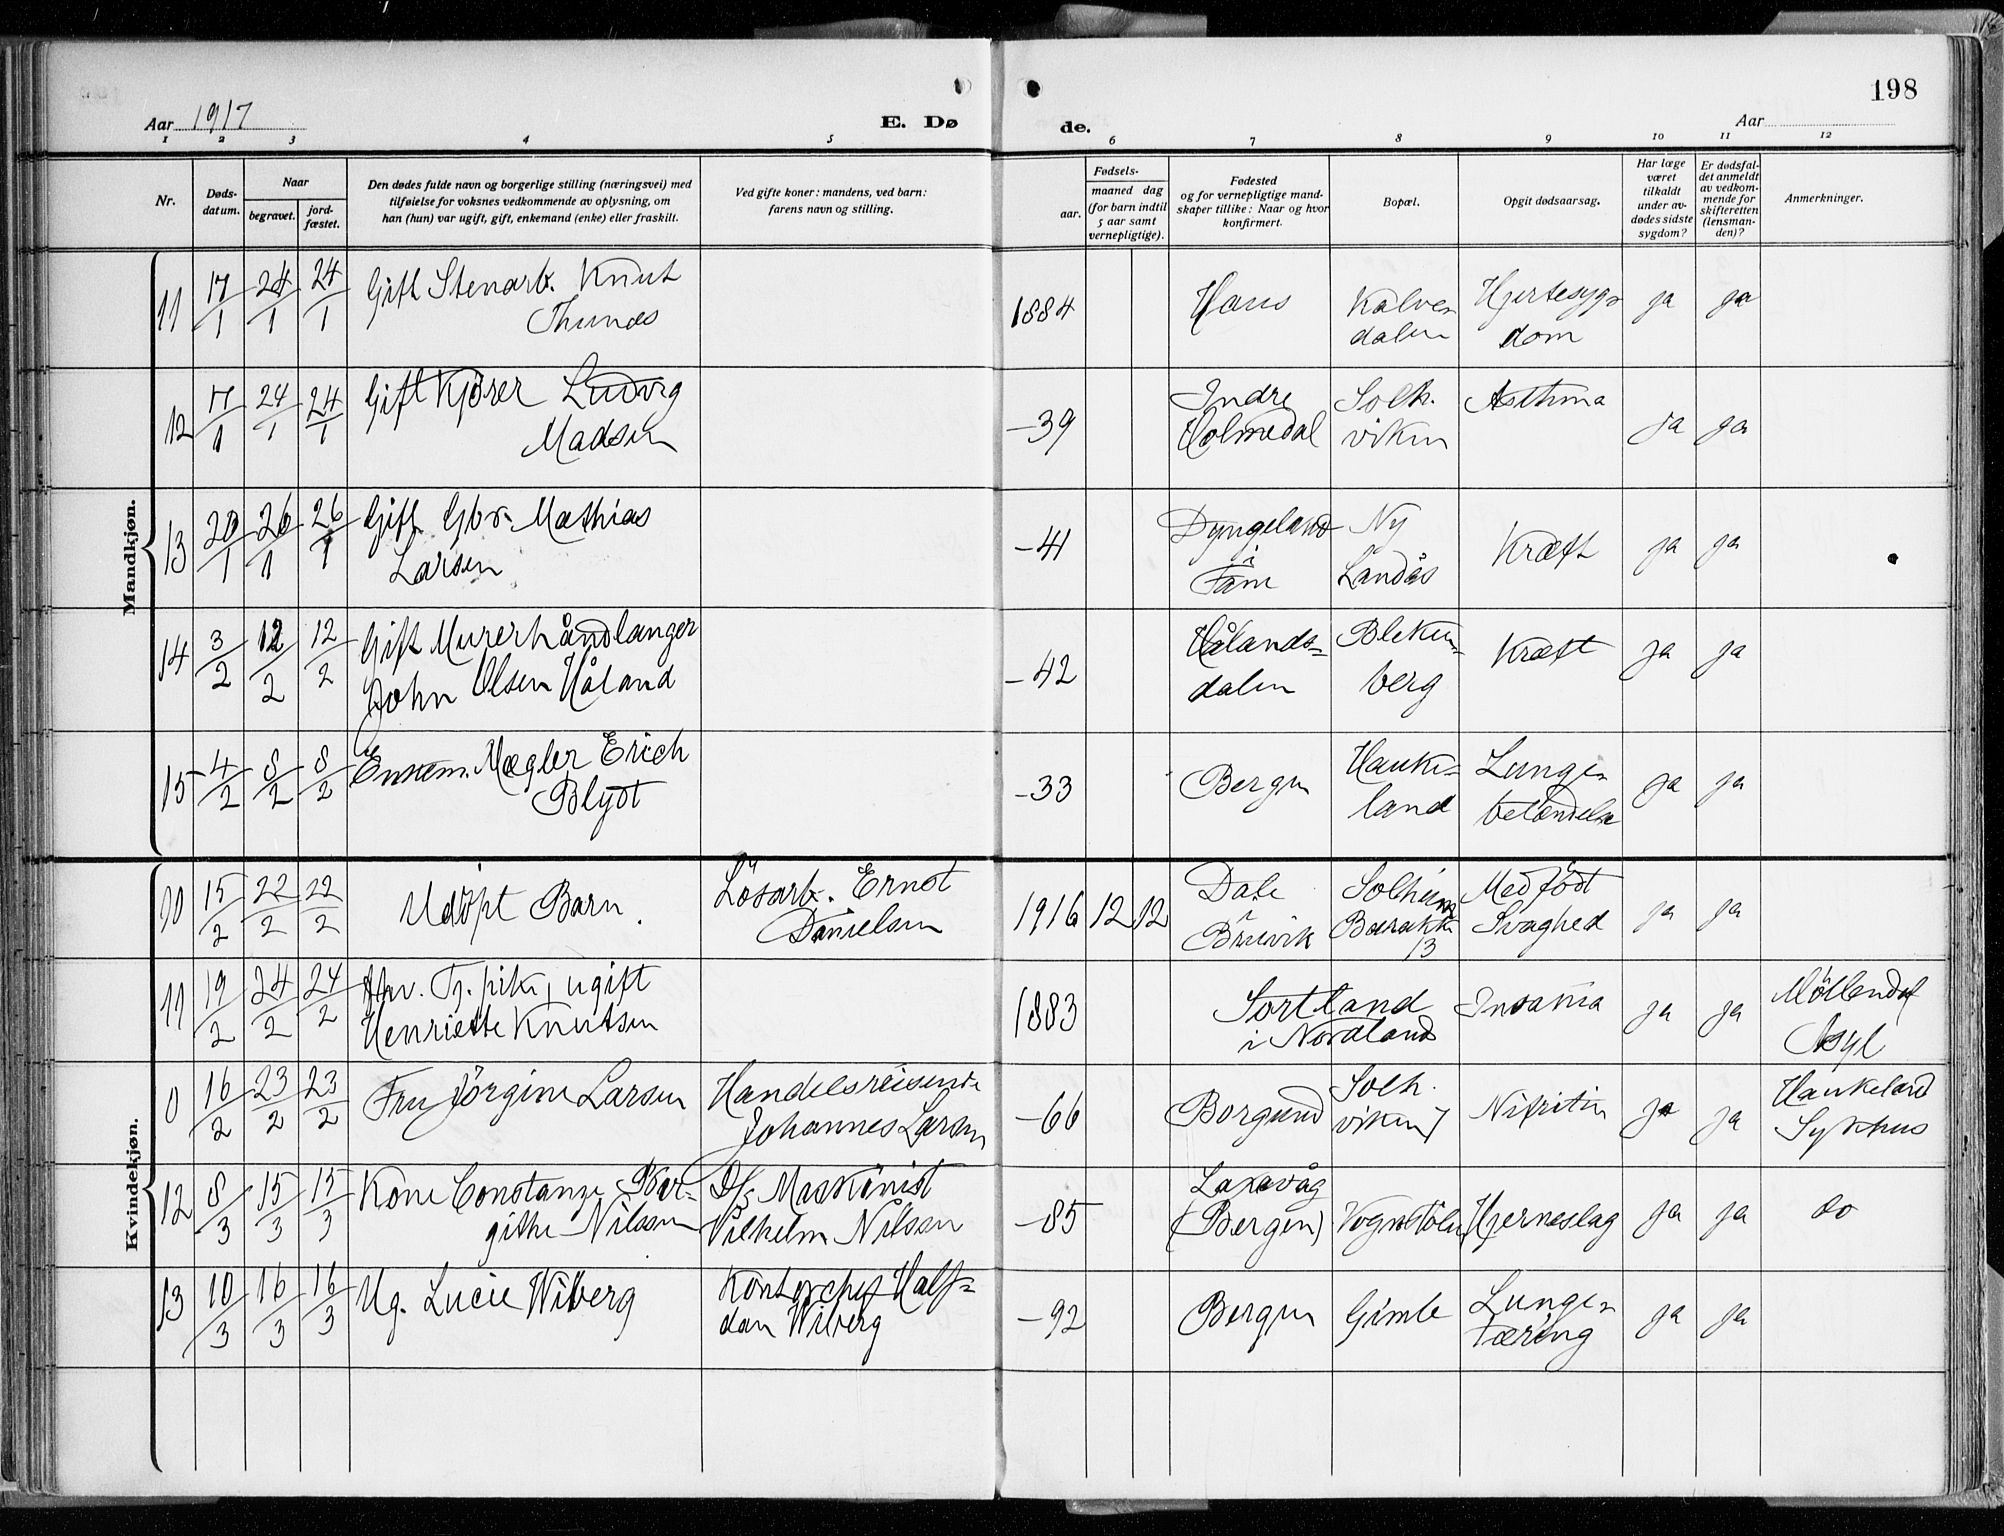 198
Aar 1917
E. Dø
de.
Aar
1 2 3 4 5 6 7 8 9 10 11 12
Nr.
Døds-
datum.
Naar
begravet.
jord-
fæstet.
Den dødes fulde navn og borgerlige stilling (næringsvei) med
tilføielse for voksnes vedkommende av oplysning, om
han (hun) var ugift, gift, enkemand (enke) eller fraskilt.
Ved gifte koner: mandens, ved barn:
farens navn og stilling.
Fødsels-
aar.
maaned dag
(for barn indtil
5 aar samt
vernepligtige).
Fødested
og for vernepligtige mand-
skaper tillike: Naar og hvor
konfirmert.
Bopæl.
Opgit dødsaarsag.
Har læge
været
tilkaldt
under av-
dødes sidste
sygdom?
Er dødsfal-
det anmeldt
av vedkom-
mende for
skifteretten
(lensman-
den)?
Anmerkninger.
Mandkjøn.
11 17/1 24/1 24/1 Gift Stenarb. Knut 1884 Haus Kalve- Hjertesyg- ja ja
Thunes dalen dom
12 17/1 24/1 24/1 Gift Kjörer Ludvig -39 Indre Solh. Asthma ja ja
Madsen Holmedal viken
13 20/1 26/1 26/1 Gift Gbr. Mathias -41 Dyngeland Ny Kræft ja ja
Larsen i Landås
Fane
14 3/2 12/2 12/2 Gift Murerhåndlanger -42 Hålands- Bleken- Kræft ja ja
John Olsen Håland dalen berg
15 4/2 8/2 8/2 Enkem. Mægler Erich -33 Bergen Hauke- Lunge- ja ja
Blydt land betændelse
Kvindekjøn.
10 15/2 22/2 22/2 Udöpt Barn. Lösarb. Ernst 1916 12 12 Dale Solheim Medfödt ja ja
Danielsen i Bruvik Barakke Svaghed
13
11 19/2 24/2 24/2 Tj. pike, ugift 1883 Sortland Insania ja ja Möllendal
Henriette Knutsen i Nordland Asyl
0 16/2 23/2 23/2 Fru Jörgine Larsen Handelsreisende -66 Borgund Solh. Nifritis ja ja Haukeland
Johannes Larsen viken Sykehus
12 8/3 15/3 15/3 Kone Constanze Ber- D/s Maskinist -85 Laxevåg Vognstölen Hjerneslag ja ja do
githe Nilssen Vilhelm Nilssen (Bergen)
13 10/3 16/3 16/3 Ug. Lucie Wiberg Kontorchef Half- -92 Bergen Gimle Lunge- ja ja
dan Wiberg tæring